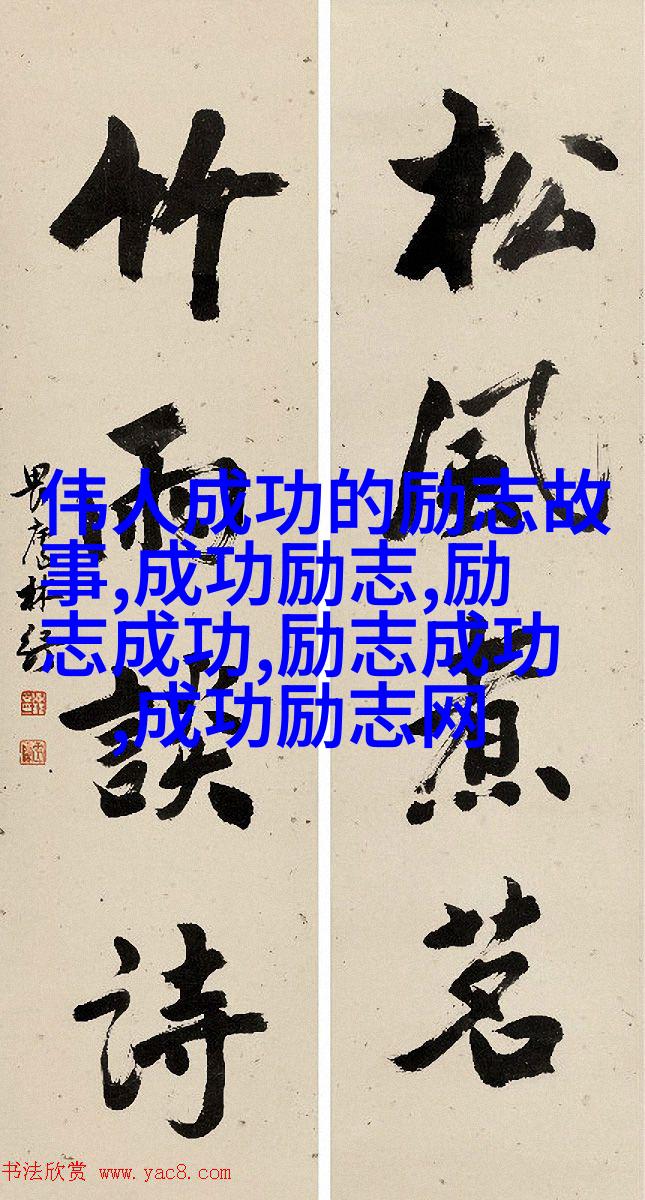 松風煮茗
竹雨談詩
畏廬林紓
伟人成功的励志故
事,成功励志,励
志成功,励志成功
,成功励志网
书法欣赏 www.yac8.com